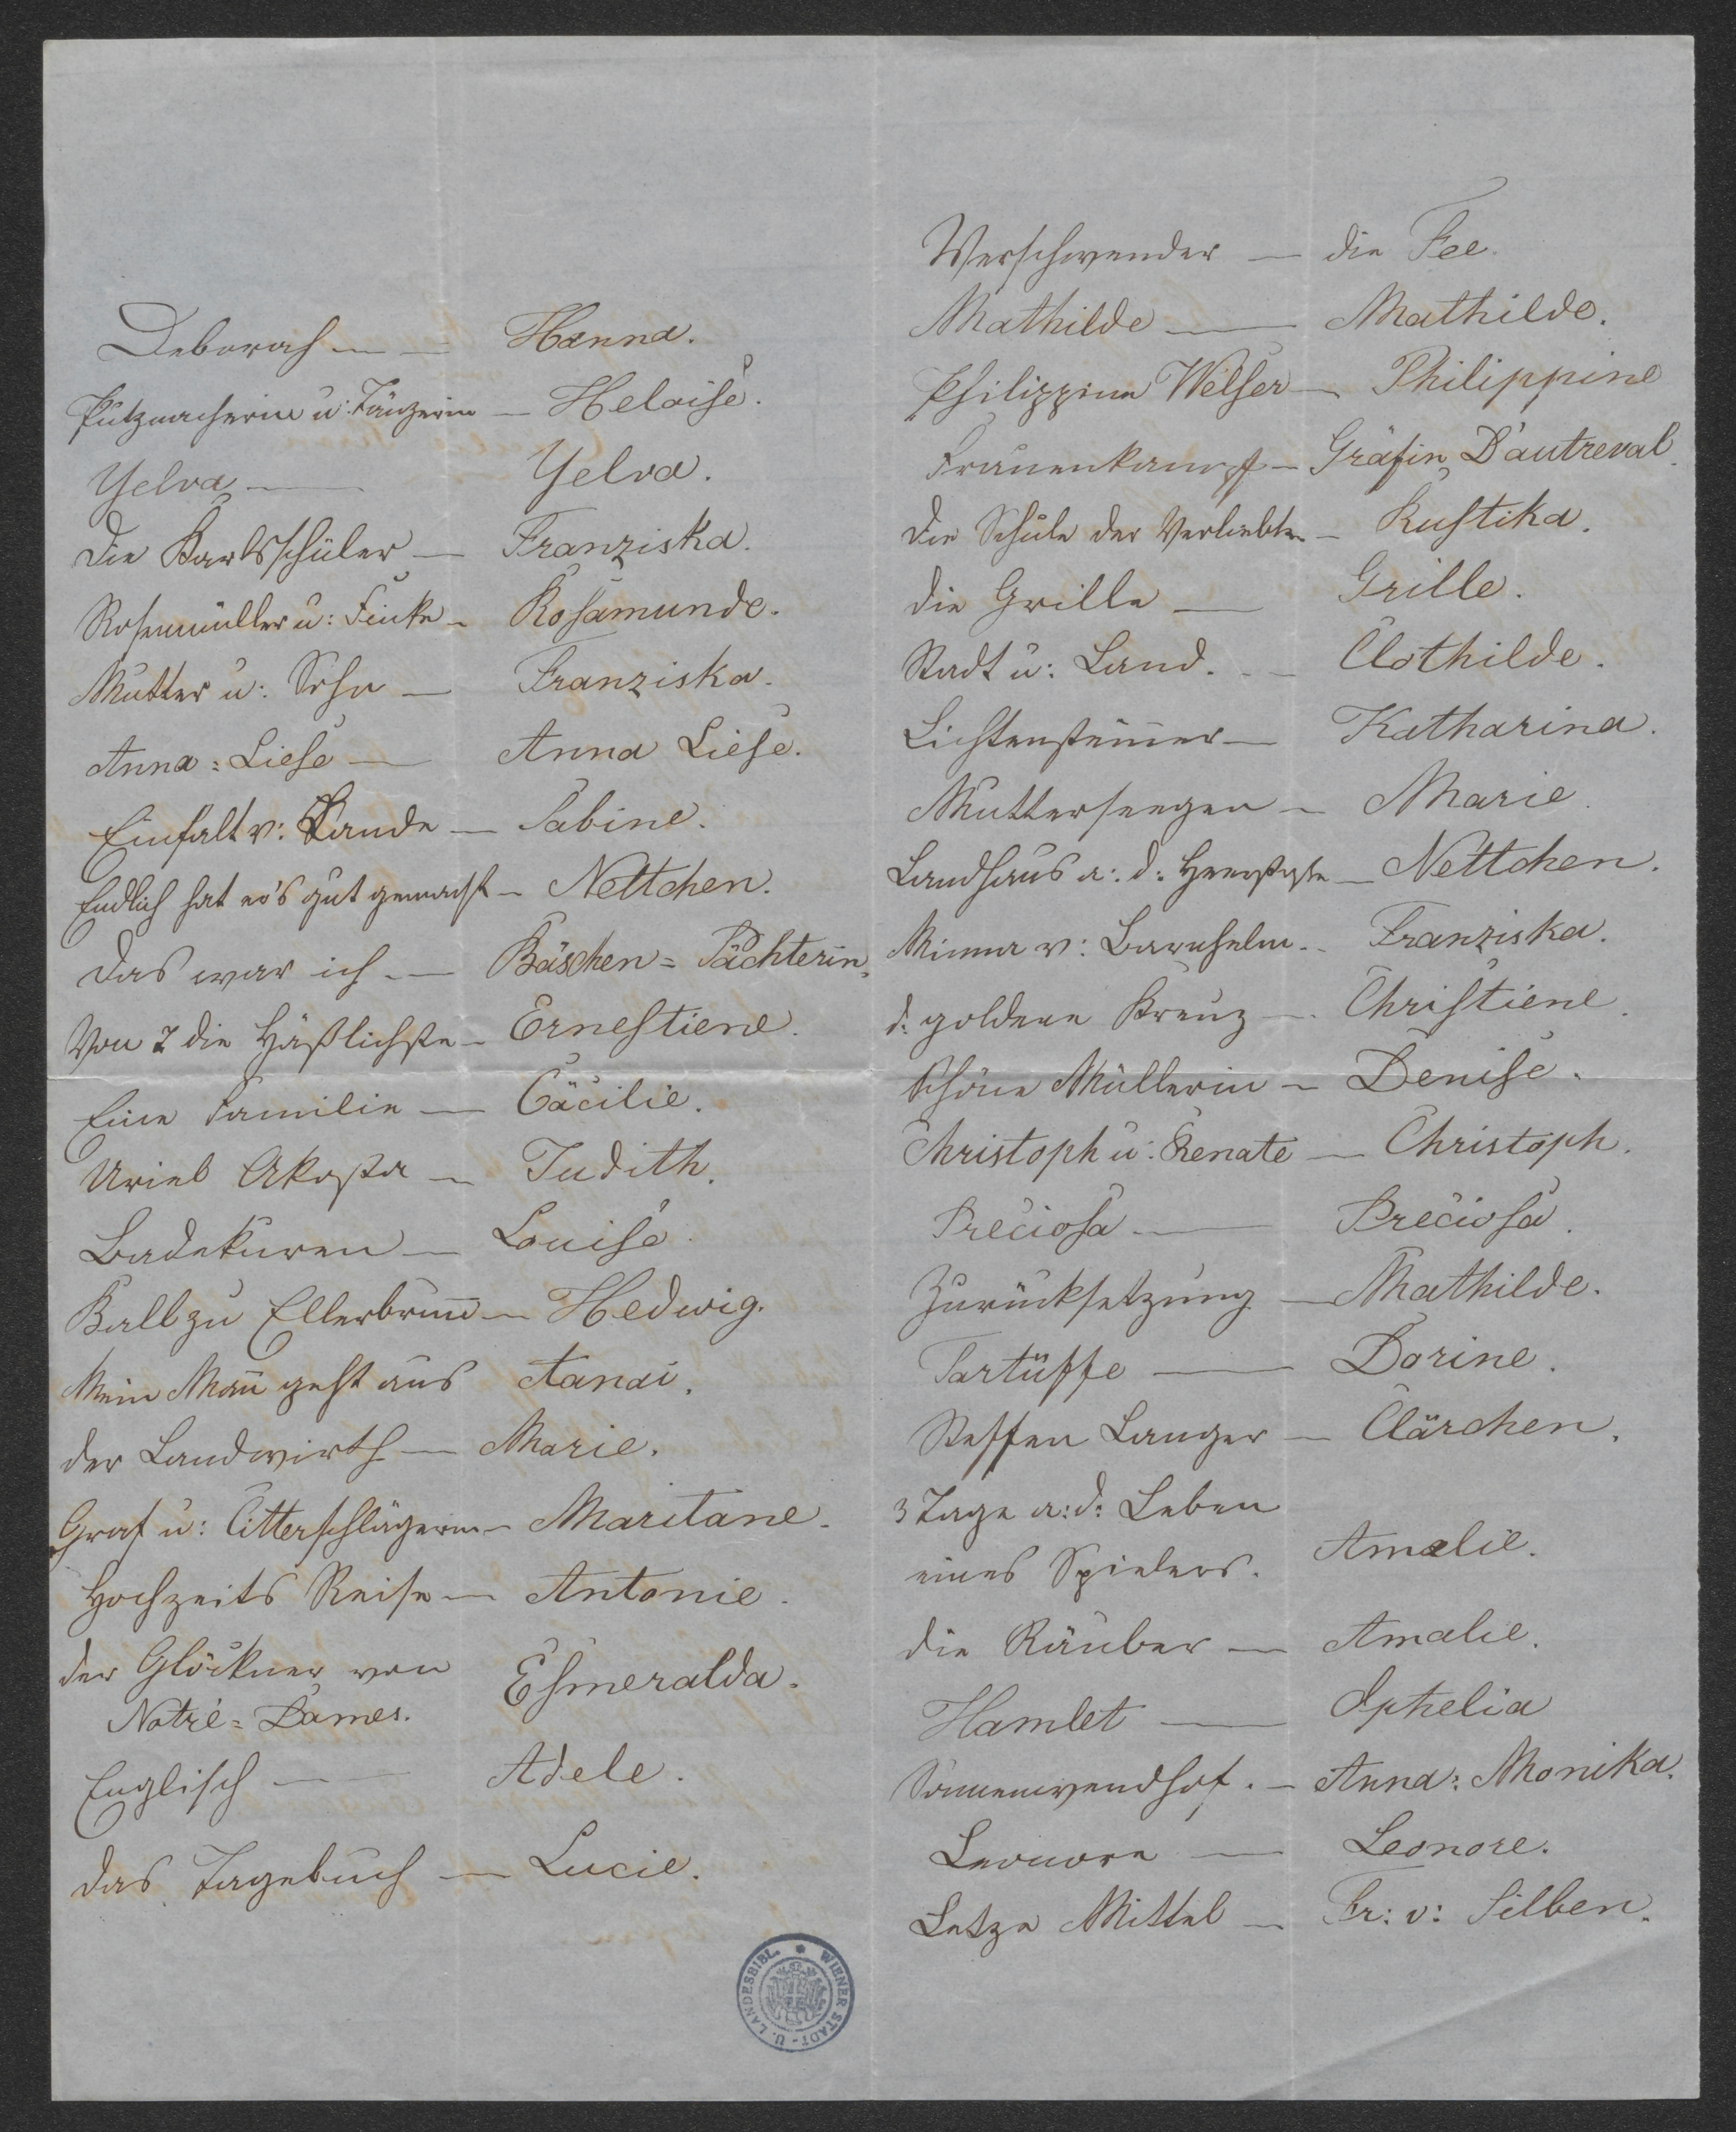 Deborah — — Hanna.
Putzmacherin u: Tänzerin — Heloise.
Yelva — Yelva.
Die Karlsschüler — Franziska.
Rosenmüller u: Finke — Rosamunde.
Mutter u: Sohn — Franziska.
Anna=Liese — Anna Liese.
Einfalt v: Lande — Sabine.
Endlich hat er's gut gemacht — Nettchen.
Das war ich — Bäschen=Pächterin.
Von 7 die Häßlichste — Ernestiene.
Eine Familie — Cäcilie.
Uriel Akosta — Judith.
Badekuren — Louise.
Ball zu Ellerbrun̅ — Hedwig.
Mein Man̅ geht aus
der Landwirth — Marie.
Graf u: Citterschlägerin — Maritane.
Hochzeits Reise — Antonie.
der Glöckner von
Notre=Dames. Esmeralda.
Englisch — — Adele.
das Tagebuch — Lucie.
Verschwender — die Fee.
Mathilde — Mathilde.
Philippine Welser — Philippine
Frauenkampf — Gräfin D'autreval.
Die Schule der Verliebten — Rustika.
die Grille — Grille.
Stadt u: Land. — Clothilde.
Lichtensteiner — Katharina.
Muttersegen — Marie.
Landhaus a: d: Heerstraße — Nettchen.
Minna v: Barnhelm — Franziska.
d: goldene Kreuz — Christiene.
Schöne Müllerin — Denise.
Christoph u: Renate — Christoph.
Preciosa — Preciosa.
Zurücksetzung — Mathilde.
Tartüffe — Dorine.
Steffen Langer — Clärchen.
3 Tage a: d: Leben
eines Spielers. Amalie.
die Räuber — Amalie.
Hamlet — Ophelia
Sonnenwendhof. — Anna: Monika.
Leonore — Leonore.
Letze Mittel — Fr: v: Silben.
WIENER STADT- U. LANDESBIBL.